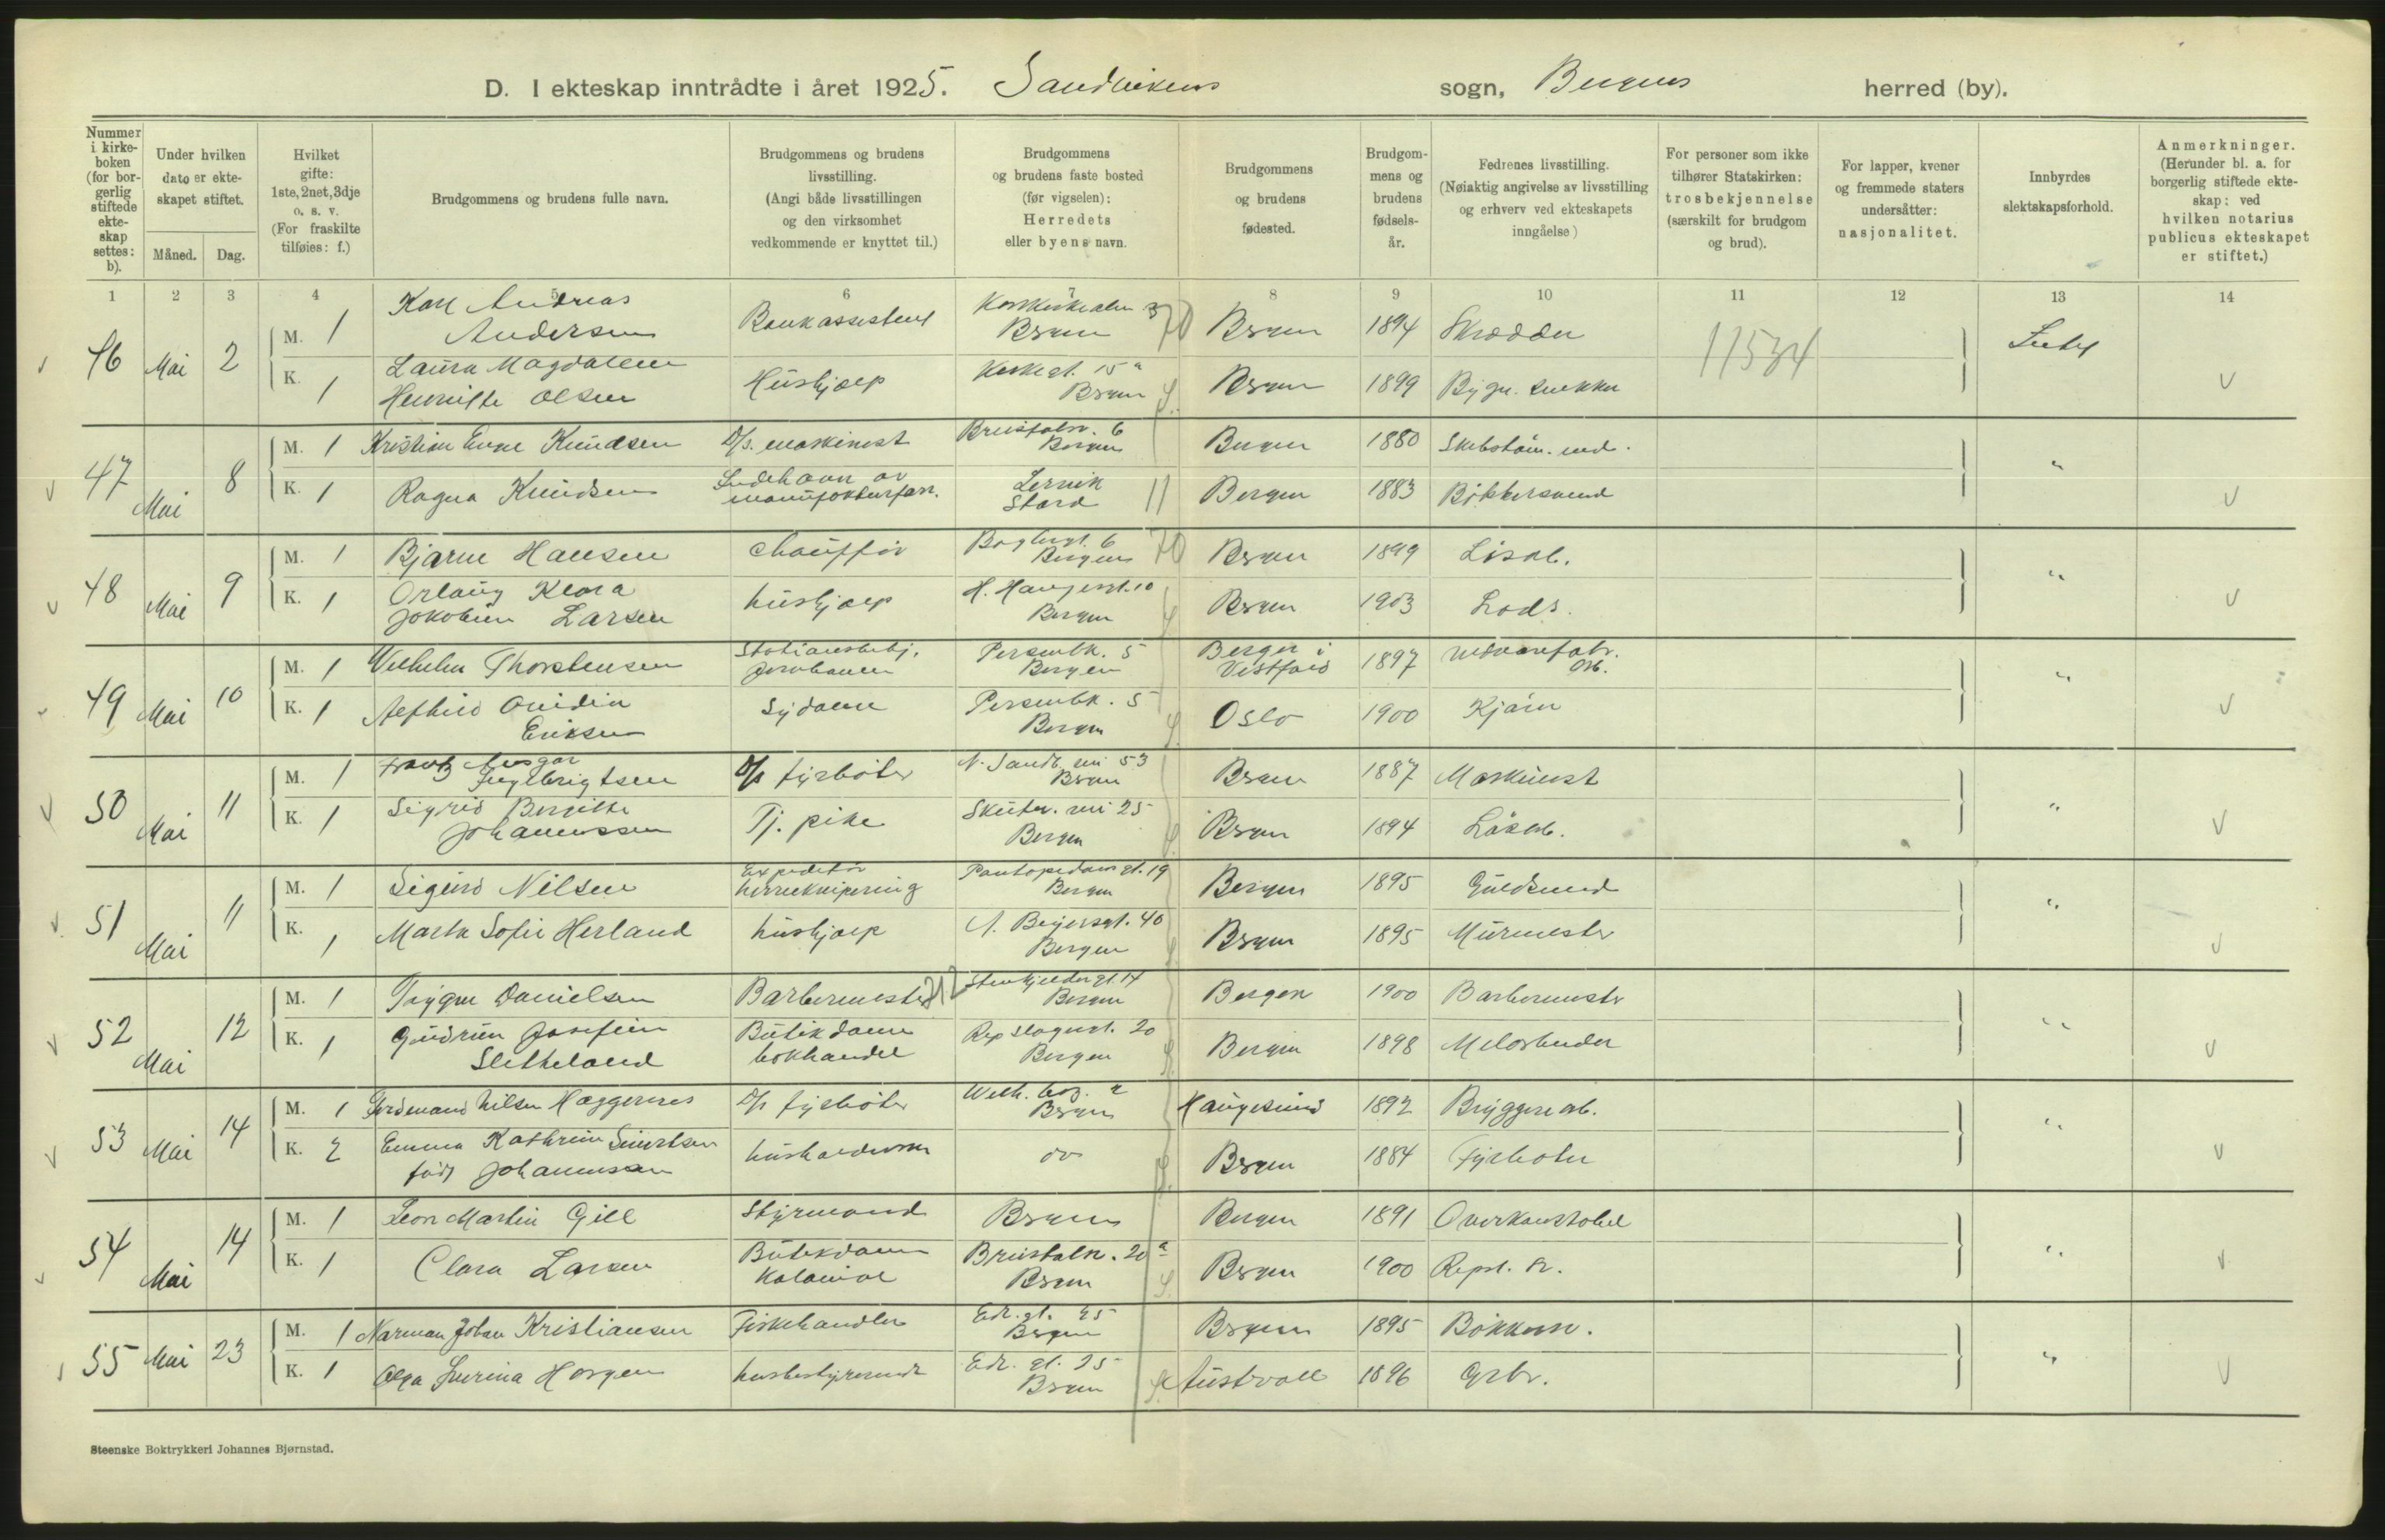 D. I ekteskap inntrådte i året 1925. Sandvikens sogn, Bergens herred (by).
Nummer i kirkeboken (for borgerlig stiftede ekteskap settes: b).
Under hvilken dato er ekteskapet stiftet.
Måned. Dag.
Hvilket gifte: 1ste, 2net, 3dje o. s. v. (For fraskilte tilføies: f.)
Brudgommens og brudens fulle navn.
Brudgommens og brudens livsstilling. (Angi både livsstillingen og den virksomhet vedkommende er knyttet til.)
Brudgommens og brudens faste bosted (før vigselen): Herredets eller byens navn.
Brudgommens og brudens fødested.
Brudgommens og brudens fødselsår.
Fedrenes livsstilling. (Nøiaktig angivelse av livsstilling og erhverv ved ekteskapets inngåelse)
For personer som ikke tilhører Statskirken: trosbekjennelse (særskilt for brudgom og brud).
For lapper, kvener og fremmede staters undersåtter: nasjonalitet.
Innbyrdes slektskapsforhold.
Anmerkninger. (Herunder bl. a. for borgerlig stiftede ekteskap: ved hvilken notarius publicus ekteskapet er stiftet.)
1 2 3 4 5 6 7 8 9 10 11 12 13 14
46 Mai 2
M. 1 Karl Andreas Andersen Bankassistent Bergen 70 Bergen 1894 Skrædder 11534
K. 1 Laura Magdalene Henriette Olsen Húshjælp 15 a Bergen Bergen 1899 Bygn. snekker
47 Mai 8
M. 1 Kristian Knúdsen D/s. maskinist 6 Bergen Bergen 1880
K. 1 Ragna Knúdsen Indehaver av manúfakturforr. Lervik Stord 11 Bergen 1883 Bøkkersvend "
48 Mai 9
M. 1 Bjarne Hansen Chaúffør 6 Bergen 70 Bergen 1899
K. 1 Orlaúg Klara Jakobine Larsen húshjælp H. Haugesgt. 10 Bergen Bergen 1903 Lods. "
49 Mai 10
M. 1 Wilhelm Thorstensen Stationsbetj. Jernbanen Persenbk. 5 Bergen Berger i Vestfold 1897
K. 1 Alfhild Ovidia Eriksen Sydame Persenbk. 5 Bergen Oslo 1900 "
50 Mai 11
M. 1 Ansgar Ingebrigtsen D/s fyrbøter N. Sandv. vei 53 Bergen Bergen 1887 Maskinist
K. 1 Sigrid Bergitte Johannessen Tj. pike Skútev. vei 25 Bergen Bergen 1894 "
51 Mai 11
M. 1 Sigúrd Nilsen Expeditør herreekvipering 19 Bergen Bergen 1895 Gúldsmed
K. 1 Marta Sofie Herland húshjælp A. Beyersgt. 40 Bergen Bergen 1895 Múrmester "
52 Mai 12
M. 1 Trygve Danielsen Barbermester Stenkjeldergt. 14 Bergen Bergen 1900 Barbermester
K. 1 Gúdrún Josefine Sletteland Bútikdame bokhandel Repslagergt. 20 Bergen Bergen 1898 "
53 Mai 14
M. 1 Ferdinand Nilsen Haggernes D/s fyrbøter Bergen Haúgesúnd 1892 Bryggearb.
K. 2 Emma Kathrine Sivertsen født Johannessen do Bergen 1884 Fyrbøter "
54 Mai 14
M. 1 Leon Martin Gill Styrmand Bergen Bergen 1891 Overkonstabel
K. 1 Clara Larsen Bútikdame Kolonial 20 a Bergen Bergen 1900 "
55 Mai 23
M. 1 Norman Johan Kristiansen Fiskehandler Bergen Bergen 1895
K. 1 Olga Horgen husbestyrerinde 25 Bergen Aústevoll 1896 Grbr. "
Steenske Boktrykkeri Johannes Bjørnstad.